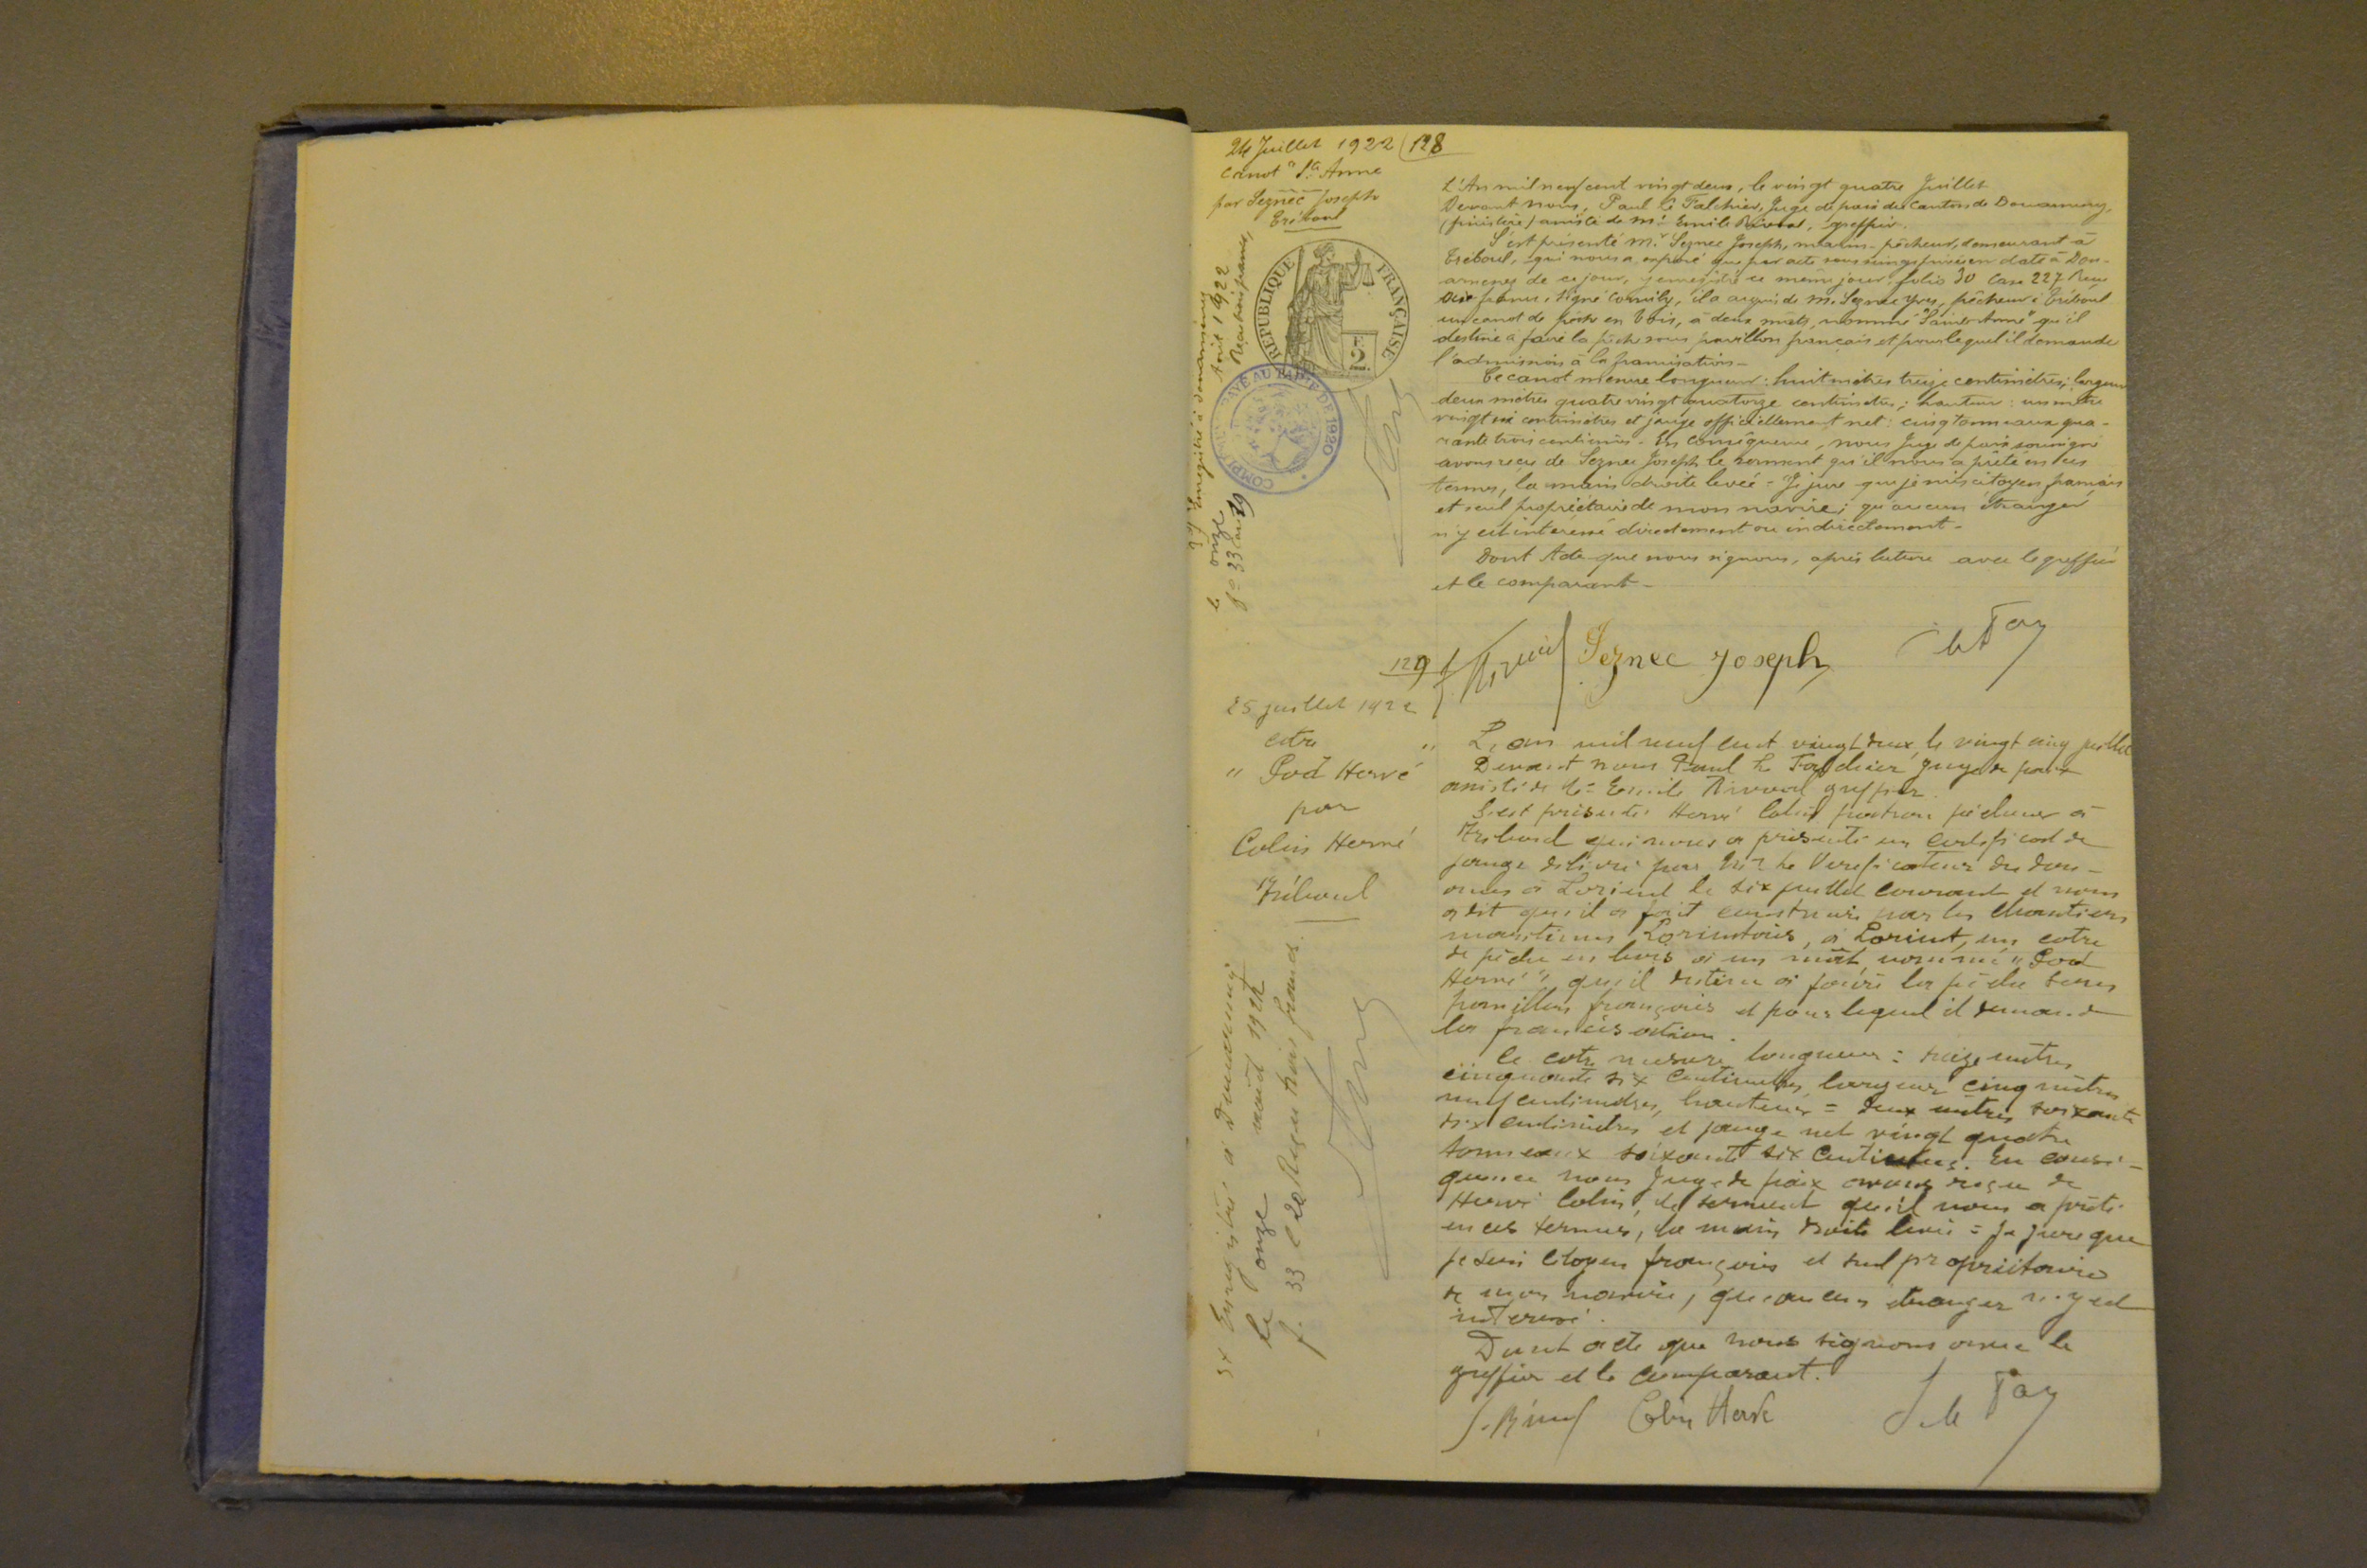 24 Juillet 1922 128
Canot "Ste Anne
par Seznec Joseph
Tréboul
RÉPUBLIQUE FRANÇAISE
2
PAYÉ AU TARIF DE 1920
Enregistré à Douarnenez
le onze Août 1922
f° 33 Case 19 Reçu trois francs,
L'An mil neuf cent vingt deux, le vingt quatre Juillet
Devant nous, Paul Le Falchier, Juge de paix du Canton de Douarnenez,
(finistère) assisté de Mr. Emile greffier.
S'est présenté Mr. Seznec Joseph, marin-pêcheur, demeurant à
Tréboul, qui nous a exposé que par acte sous seings privés en date à Dou-
arnenez de ce jour, enregistré ce même jour, folio 30 Case 227 Reçu
francs, signé Cornily, il a acquis de M. Seznec Yves, pêcheur à Tréboul
un canot de pêche en bois, à deux mâts, nommé "Sainte Anne" qu'il
destine à faire la pêche sous pavillon français et pour lequel il demande
l'admission à la francisation -
Ce canot mesure longueur : huit mètres treize centimètres; largeur
deux mètres quatre vingt quatorze centimètres; hauteur : un mètre
vingt six centimètres et jauge officiellement net : cinq tonneaux qua-
rante trois centièmes - En conséquence, nous Juge de paix soussigné
avons reçu de Seznec Joseph le serment qu'il nous a prêté en ces
termes, la main droite levée - Je jure que je suis citoyen français
et seul propriétaire de mon navire; qu'aucun étranger
n'y est intéressé directement ou indirectement -
Dont Acte que nous signons, après lecture avec le greffier
et le comparant -
Seznec Joseph
129
25 juillet 1922
cotre
" Pod Hervé
par
Colin Hervé
Tréboul
Enregistré à Douarnenez
le onze août 1922
f. 33 C 20 Reçu trois francs.
L'an mil neuf cent vingt deux, le vingt cinq juillet
Devant nous Paul Le Falchier Juge de paix
assisté de Mr Emile greffier.
S'est présenté Hervé Colin patron pêcheur à
Tréboul qui nous a présenté un certificat de
jauge délivré par Mr le Vérificateur des dou-
anes à Lorient le six juillet courant et nous
a dit qu'il a fait construire par les Chantiers
maritimes Lorientais, à Lorient, un cotre
de pêche en bois à un mât, nommé "Pod
Hervé", qu'il destine à faire la pêche sous
pavillon français et pour lequel il demande
la francisation.
Ce cotre mesure longueur : seize mètres
cinquante six centimètres, largeur cinq mètres
neuf centimètres, hauteur = deux mètres soixante
six centimètres et jauge net vingt quatre
tonneaux soixante six centièmes. En consé-
quence nous Juge de paix avons reçu de
Hervé Colin, le serment qu'il nous a prêté
en ces termes, la main droite levée = Je jure que
je suis citoyen français et seul propriétaire
de mon navire, qu'aucun étranger n'y est
intéressé.
Dont acte que nous signons avec le
greffier et le comparant.
Colin Hervé